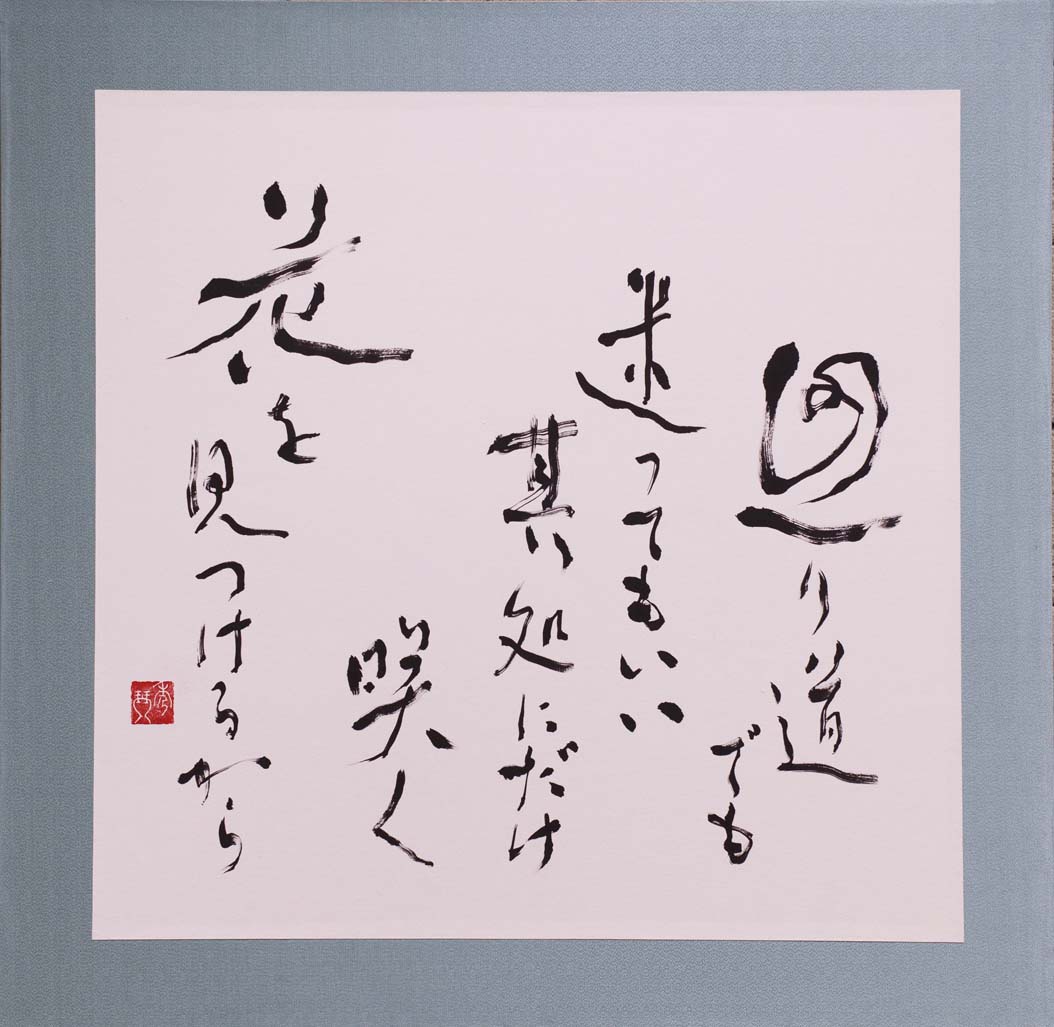 廻り道
でも
迷ってもいい
其処にだけ
咲く
花を
見つけるから